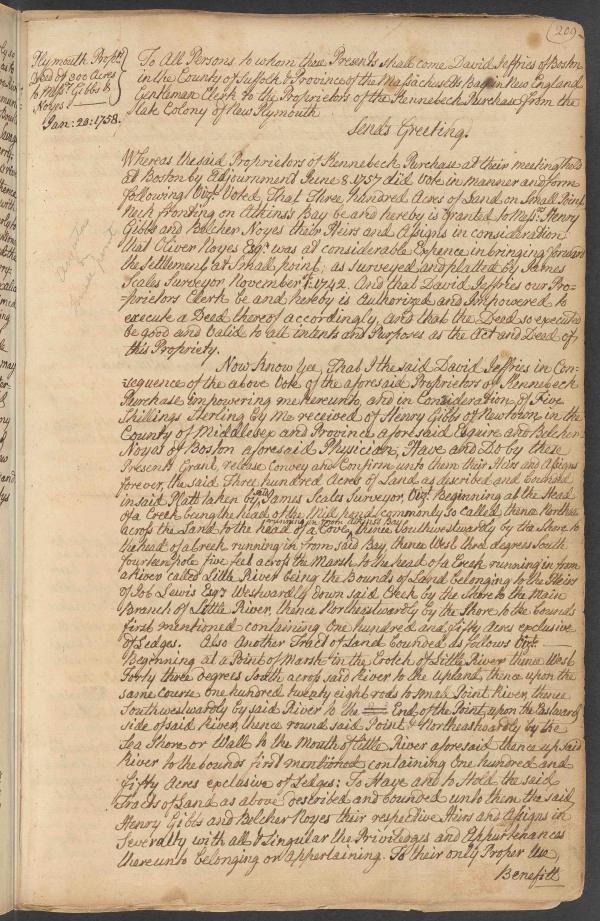 209
Plymouth Prop.rs
Deed of 300 Acres
to Mess.rs Gibbs &
Noyes
Jan: 28: 1758.
To All Persons to whom these Presents shall come David Jeffries of Boston
in the County of Suffolk & Province of the Massachusetts Bay in New England
Gentleman Clerk to the Proprietors of the Kennebeck Purchase from the
late Colony of New Plymouth
Sends Greeting.
Whereas the said Proprietors of Kennebeck Purchase at their meeting held
at Boston by Adjournment June 8 1757 did Vote in manner and form
following Viz.t Voted, That Three Hundred Acres of Land on Small Point
Neck fronting on Atkins's Bay be and hereby is granted to Mess.rs Henry
Gibbs and Belcher Noyes their Heirs and Assigns in consideration
that Oliver Noyes Esq.r was at considerable Expence in bringing forward
the Settlement at Small point; as surveyed and platted by James
Scales Surveyor November 1742. And that David Jeffries our Pro=
=prietors Clerk be and hereby is Authorized and Impowered to
execute a Deed thereof accordingly, And that the Deed so executed
be good and valid to all intents and Purposes as the Act and Deed of
this Propriety.
Now Know Yee, That I the said David Jeffries in Con=
=sequence of the above Vote of the aforesaid Proprietors of Kennebeck
Purchase impowering me hereunto, and in Consideration of Five
Shillings Sterling by me received of Henry Gibbs of Newtown in the
County of Middlesex and Province aforesaid Esquire and Belcher
Noyes of Boston aforesaid Physician, Have and Do by these
Presents Grant, release Convey and Confirm unto them their Heirs and Assigns
forever, the said Three hundred Acres of Land as described and bounded
in said Platt taken by said James Scales Surveyor, Viz.t Beginning at the Head
of a Creek being the head of the Mill pond commonly so called thence Northeast
across the Land to the head of a Cove running in from Atkins's Bay, thence Southwestwardly by the Shore to
the head of a Creek running in from said Bay, thence West three degrees South
fourteen pole five feet across the Marsh to the head of a Creek running in from
a River called Little River being the Bounds of Land belonging to the Heirs
of Job Lewis Esq.r Westwardly down said Creek by the Shore to the Main
Branch of Little River, thence Northeastwardly by the Shore to the bounds
first mentioned containing One hundred and fifty Acres exclusive
of Ledges. Also Another Tract of Land bounded as follows Viz.t
Beginning at a Point of Marsh in the Crotch of Little River thence West
Forty three degrees South across said River to the Upland, thence upon the
same Course One hundred twenty eight rods to Small Point River, thence
Southwestwardly by said River to the End of the Point, upon the Eastward
side of said River, thence round said Point & Northeastwardly by the
Sea Shore or Wall to the Mouth of Little River aforesaid thence up said
River to the bounds first mentioned containing One hundred and
fifty Acres exclusive of Ledges: To Have and to Hold the said
Tracts of Land as above described and bounded unto them the said
Henry Gibbs and Belcher Noyes their respective Heirs and Assigns in
Severalty with all & Singular the Priviledges and Appurtenances
thereunto belonging or Appertaining. To their only Proper Use,
Benefitt